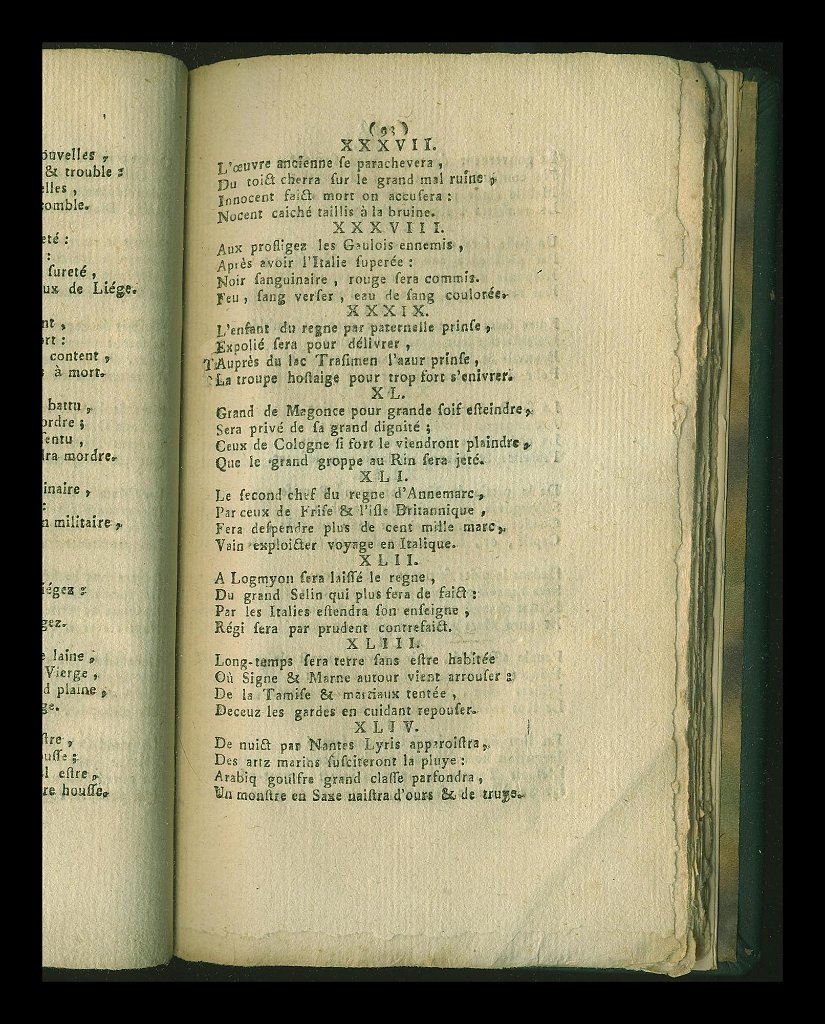 ouvelles ,
& trouble :
elles ,
comble.
eté :
:
ſureté ,
ux de Liége.
nt ,
ort :
content ,
à mort.
battu ,
ordre ;
ſentu ,
dra mordre.
inaire ,
:
n militaire ,
iégez :
gez.
e laine ,
Vierge ,
d plaine ,
ge.
ſtre ,
ouſſe ;
l eſtre ,
re houſſe.
(93)
XXXVII.
L'œuvre ancienne ſe parachevera ,
Du toict cherra ſur le grand mal ruine ,
Innocent faict mort on accuſera :
Nocent caiché taillis à la bruine.
XXXVIII.
Aux profligez les Gaulois ennemis ,
Après avoir l'Italie ſuperée :
Noir ſanguinaire , rouge ſera commis.
Feu , ſang verſer , eau de ſang coulorée.
XXXIX.
L'enfant du regne par paternelle prinſe ,
Expolié ſera pour délivrer ,
Auprès du lac Traſimen l'azur prinſe ,
La troupe hoſtaige pour trop fort s'enivrer.
XL.
Grand de Magonce pour grande ſoif eſteindre ,
Sera privé de ſa grand dignité ;
Ceux de Cologne ſi fort le viendront plaindre ,
Que le grand groppe au Rin ſera jeté.
XLI.
Le ſecond chef du regne d'Annemarc ,
Par ceux de Friſe & l'iſle Britannique ,
Fera deſpendre plus de cent mille marc ,
Vain exploicter voyage en Italique.
XLII.
A Logmyon ſera laiſſé le regne ,
Du grand Selin qui plus fera de faict :
Par les Italies eſtendra ſon enſeigne ,
Régi ſera par prudent contrefaict.
XLIII.
Long-temps ſera terre ſans eſtre habitée
Où Signe & Marne autour vient arrouſer :
De la Tamiſe & martiaux tentée ,
Deceuz les gardes en cuidant repouſer.
XLIV.
De nuict par Nantes Lyris apparoiſtra ,
Des artz marins ſuſciteront la pluye :
Arabiq goulfre grand claſſe parfondra ,
Un monſtre en Saxe naiſtra d'ours & de truye.